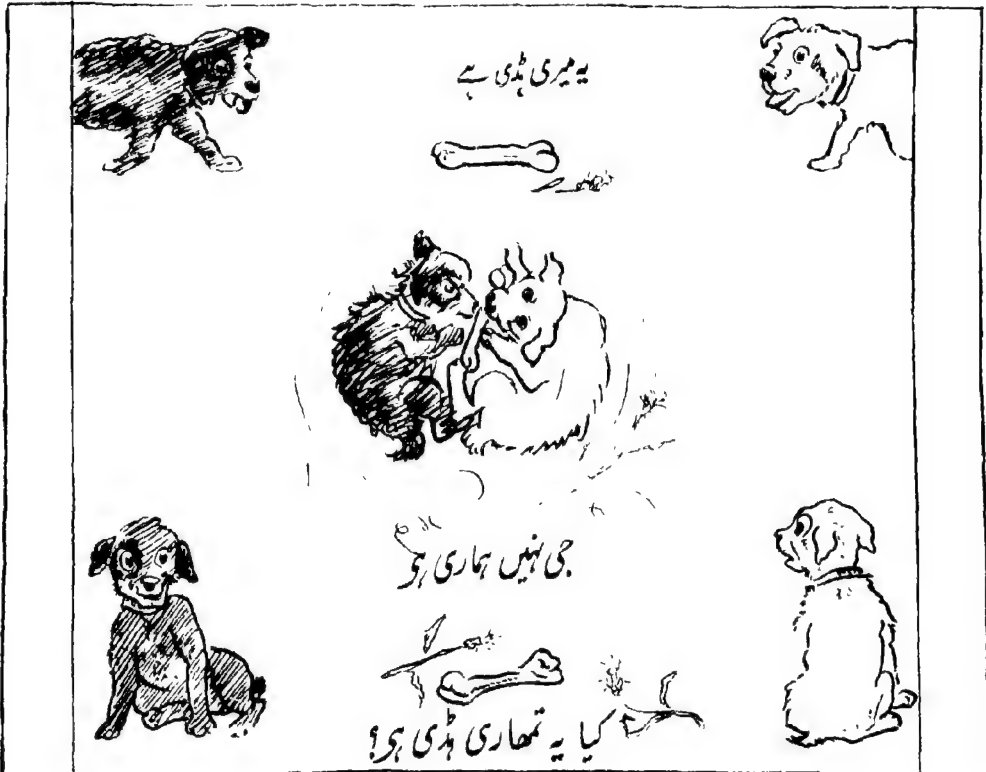 یہ میری ہڈی ہے
جی نہیں ہماری ہی
کیا یہ تمھاری ہڈی ہی؟